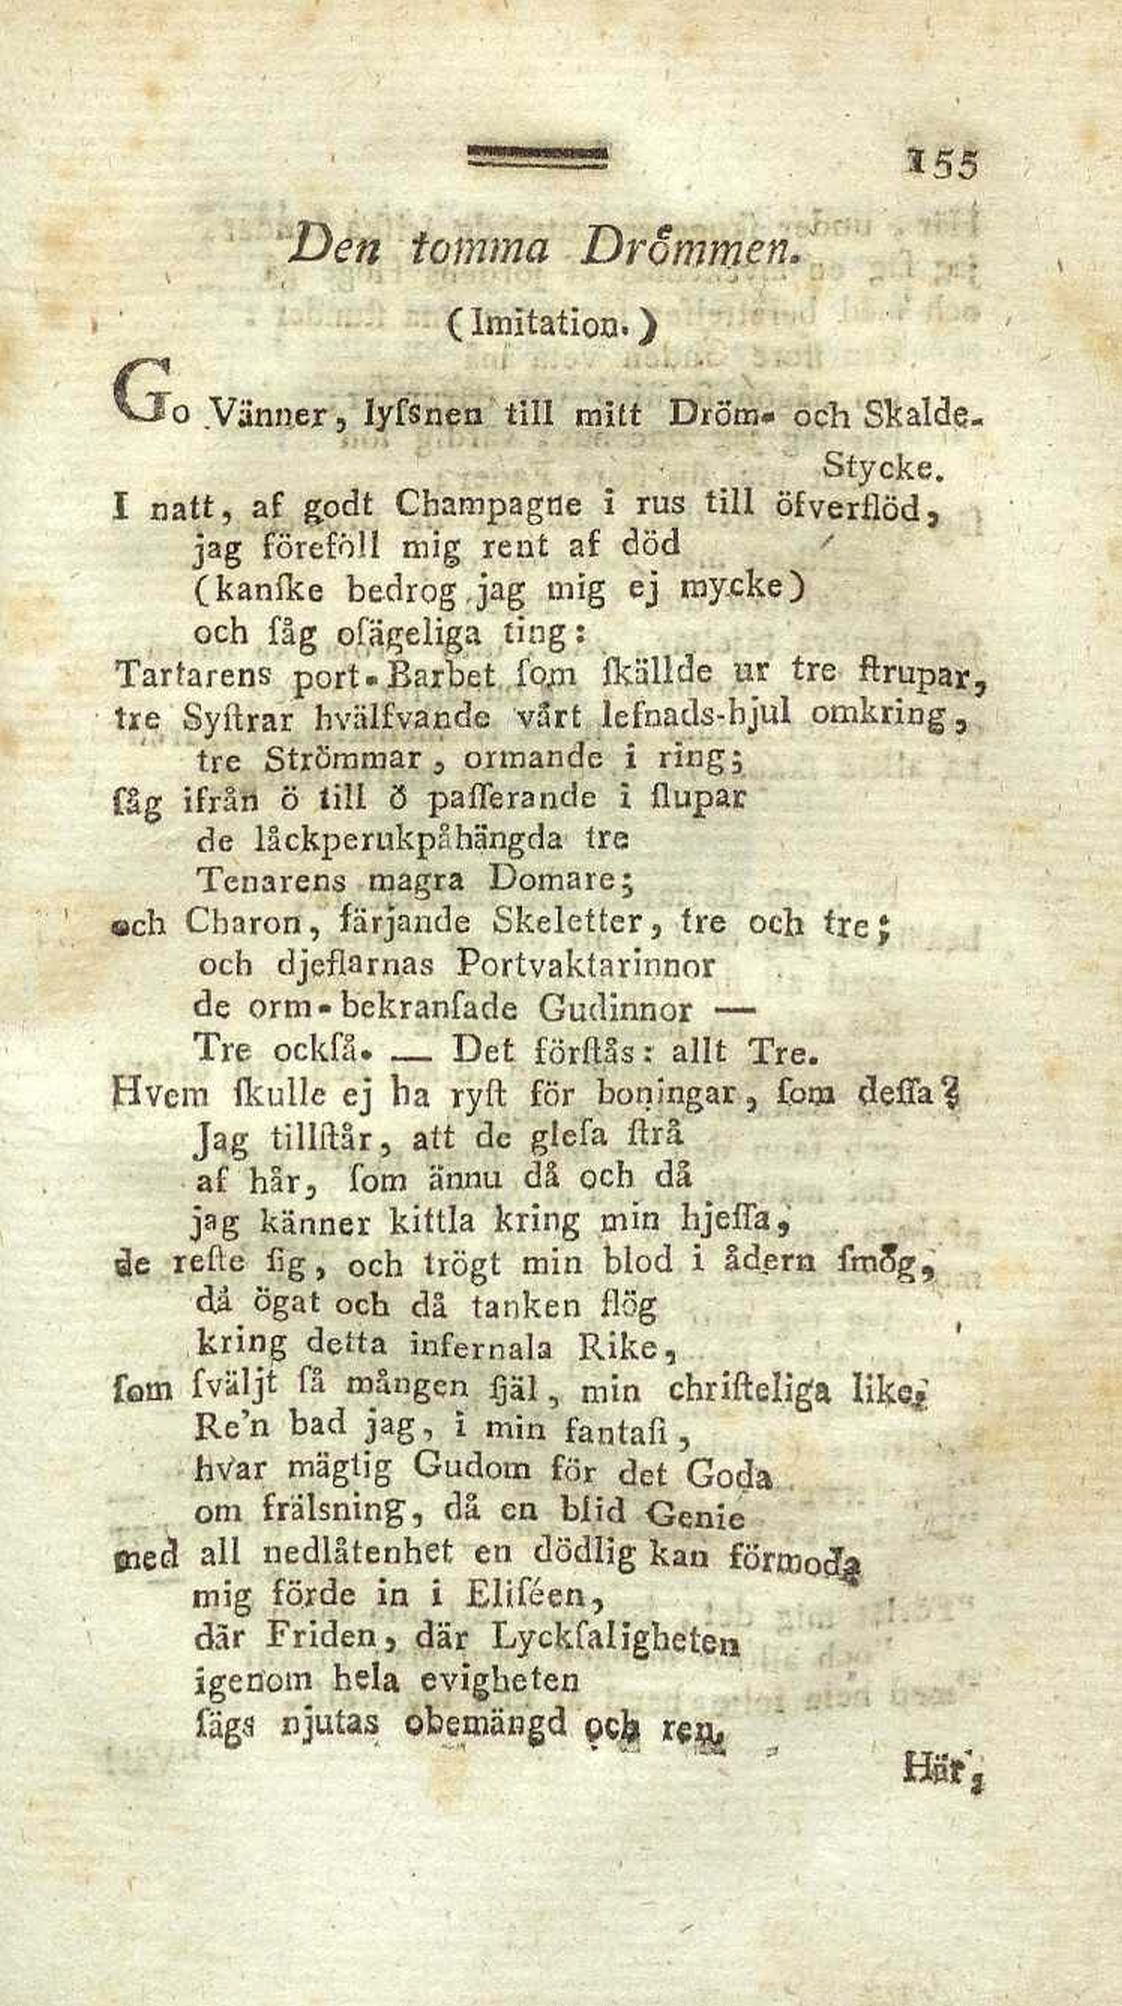 155
Den tomma Drömmen.
(Imitation.)
Go Vänner, lyſsnen till mitt Dröm- och Skalde-
Stycke.
I natt, af godt Champagne i rus till öfverflöd,
jag föreföll mig rent af död
(kanſke bedrog jag mig ej mycke)
och ſåg oſägeliga ting:
Tartarens port-Barbet ſom ſkällde ur tre ſtrupar,
tre Syſtrar hvälfvande vårt lefnads-hjul omkring,
tre Strömmar, ormande i ring;
ſåg ifrån ö till ö paſſerande i ſlupar
de låckperukpåhängda tre
Tenarens magra Domare;
och Charon, färjande Skeletter, tre och tre;
och djeflarnas Portvaktarinnor
de orm-bekranſade Gudinnor —
Tre ockſå. — Det förſtås: allt Tre.
Hvem ſkulle ej ha ryſt för boningar, ſom deſſa?
Jag tillſtår, att de gleſa ſtrå
af hår, ſom ännu då och då
jag känner kittla kring min hjeſſa,
de reſte ſig, och trögt min blod i ådern ſmög,
då ögat och då tanken flög
kring detta infernala Rike,
ſom ſväljt ſå mången ſjäl, min chriſteliga like;
Re'n bad jag, i min fantaſi,
hvar mägtig Gudom för det Goda
om frälsning, då en blid Genie
med all nedlåtenhet en dödlig kan förmoda
mig förde in i Eliſéen,
där Friden, där Lyckſaligheten
igenom hela evigheten
ſägs njutas obemängd och ren.
Här,